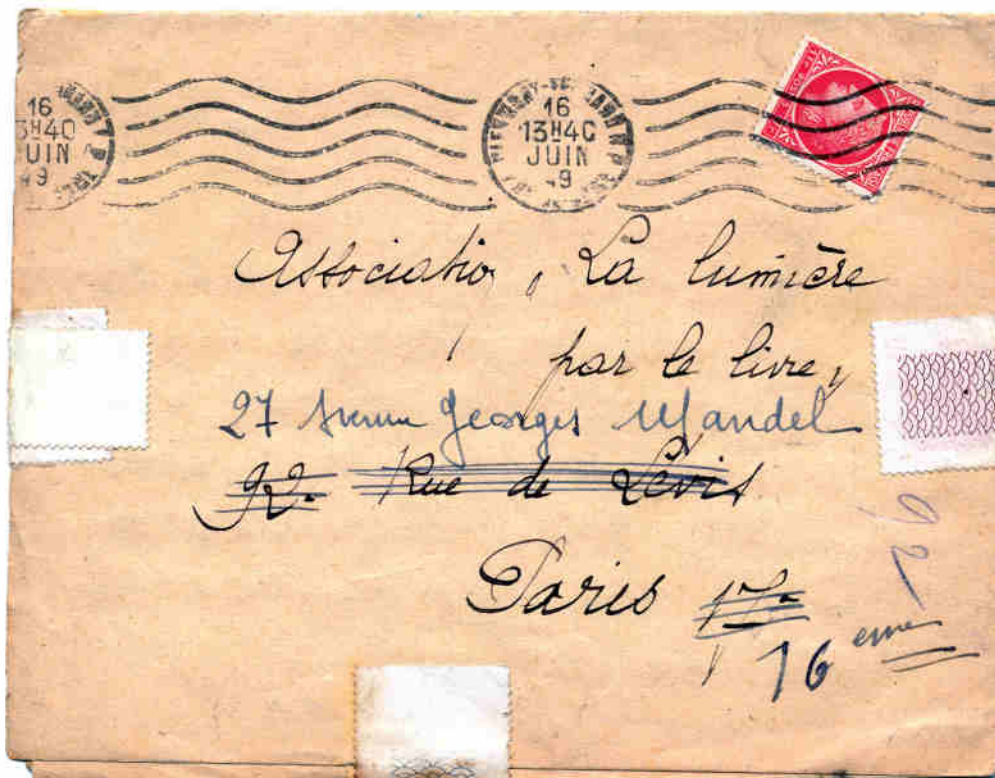 16
13H4C
JUIN
49
16
3H40
UIN
49
Association, La lumière
par le livre,
27 Avenue Georges Mandel
92. Rue de Lévis
Paris 17e
16 eme
92